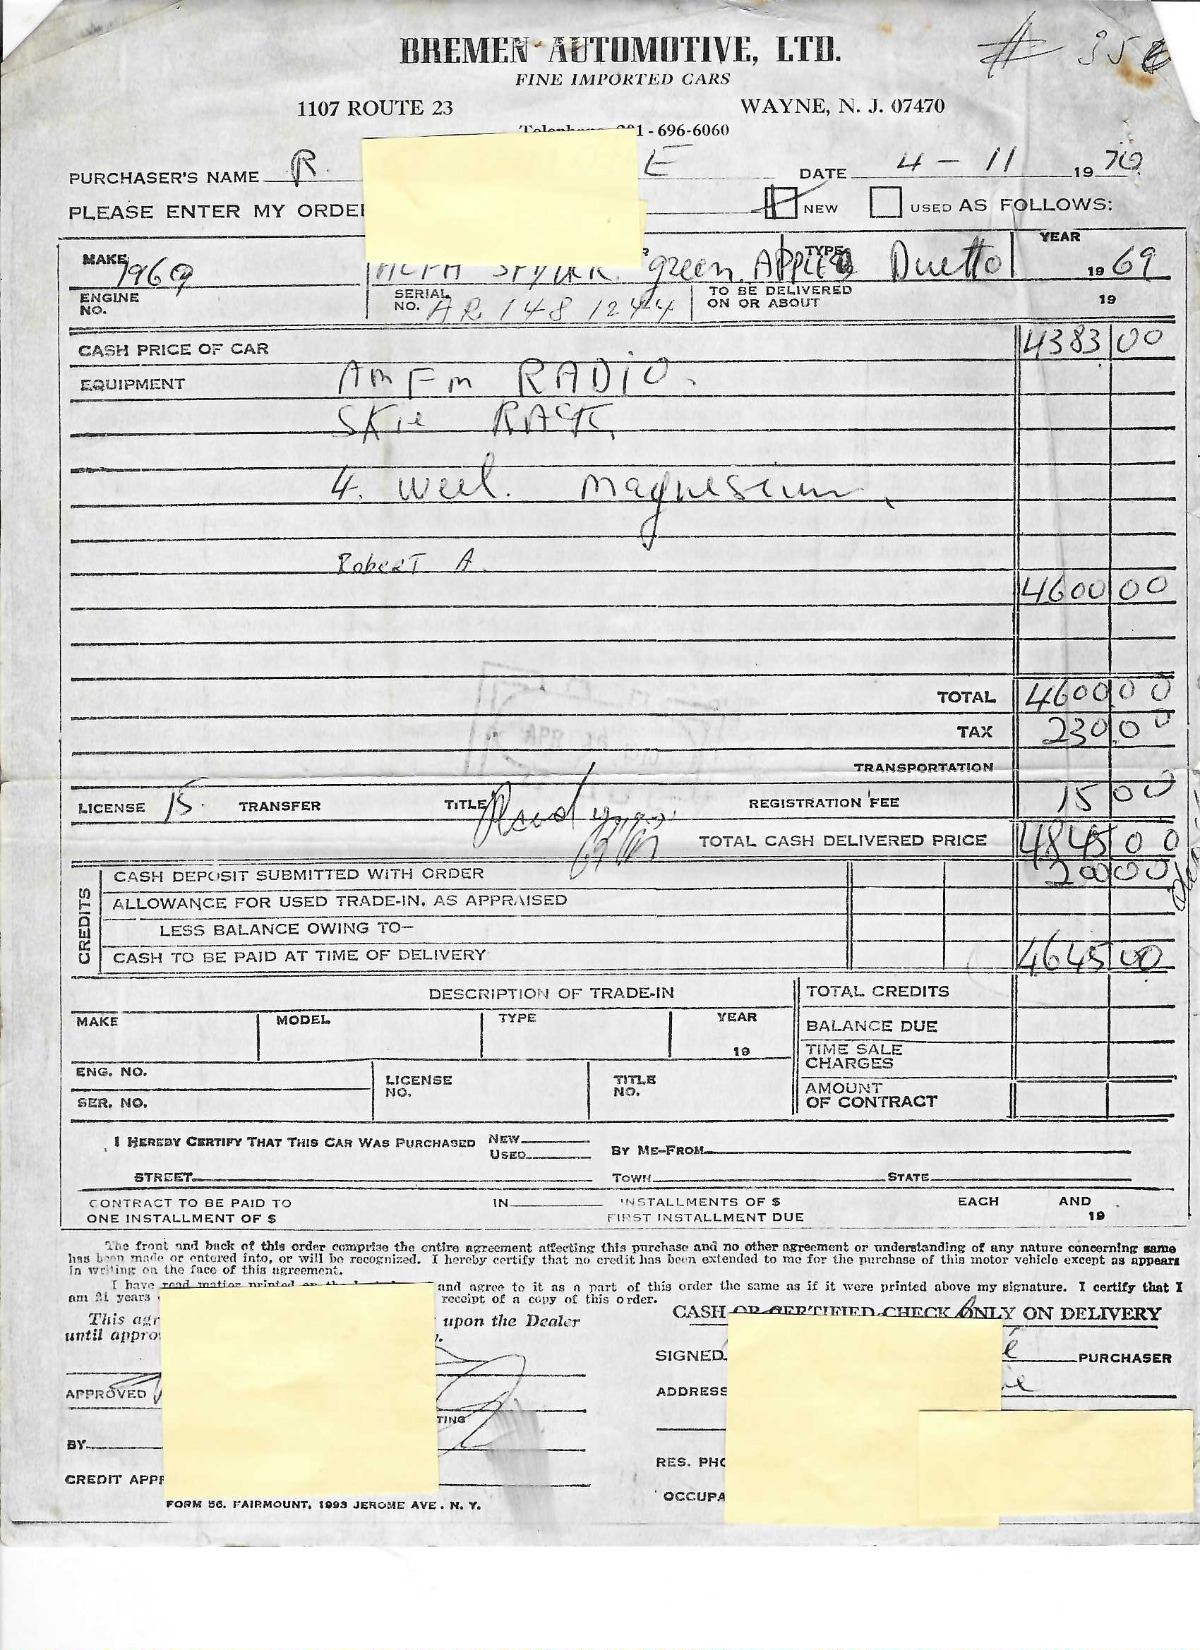 BREMEN AUTOMOTIVE, LTD.
# 35
FINE IMPORTED CARS
1107 ROUTE 23 WAYNE, N. J. 07470
Telephone 201-696-6060
PURCHASER'S NAME R. E DATE 4-11 1970
PLEASE ENTER MY ORDER NEW USED AS FOLLOWS:
MAKE 1969 ALFA SPYDER green APPLE TYPE Duetto YEAR 1969
ENGINE NO. SERIAL NO. AR 1481244 TO BE DELIVERED ON OR ABOUT 19
CASH PRICE OF CAR 4383 00
EQUIPMENT AM FM RADIO.
SKie RACK
4. weel. magnesium
Robert A.
4600 00
TOTAL 4600 00
TAX 230.00
TRANSPORTATION
LICENSE 15. TRANSFER TITLE REGISTRATION FEE 15 00
TOTAL CASH DELIVERED PRICE 4845 00
CREDITS
CASH DEPOSIT SUBMITTED WITH ORDER 200 00
ALLOWANCE FOR USED TRADE-IN, AS APPRAISED
LESS BALANCE OWING TO—
CASH TO BE PAID AT TIME OF DELIVERY 4645 00
DESCRIPTION OF TRADE-IN TOTAL CREDITS
MAKE MODEL TYPE YEAR 19 BALANCE DUE
TIME SALE CHARGES
ENG. NO. LICENSE NO. TITLE NO.
SER. NO. AMOUNT OF CONTRACT
I HEREBY CERTIFY THAT THIS CAR WAS PURCHASED NEW USED BY ME-FROM
STREET TOWN STATE
CONTRACT TO BE PAID TO IN INSTALLMENTS OF $ EACH AND
ONE INSTALLMENT OF $ FIRST INSTALLMENT DUE 19
The front and back of this order comprise the entire agreement affecting this purchase and no other agreement or understanding of any nature concerning same
has been made or entered into, or will be recognized. I hereby certify that no credit has been extended to me for the purchase of this motor vehicle except as appears
in writing on the face of this agreement.
I have read matter printed on the and agree to it as a part of this order the same as if it were printed above my signature. I certify that I
am 21 years receipt of a copy of this order.
CASH OR CERTIFIED CHECK ONLY ON DELIVERY
This agr upon the Dealer
until appro
SIGNED PURCHASER
APPROVED ADDRESS
TING
BY
RES. PHO
CREDIT APPR
OCCUPA
FORM 56. FAIRMOUNT, 1993 JEROME AVE. N. Y.